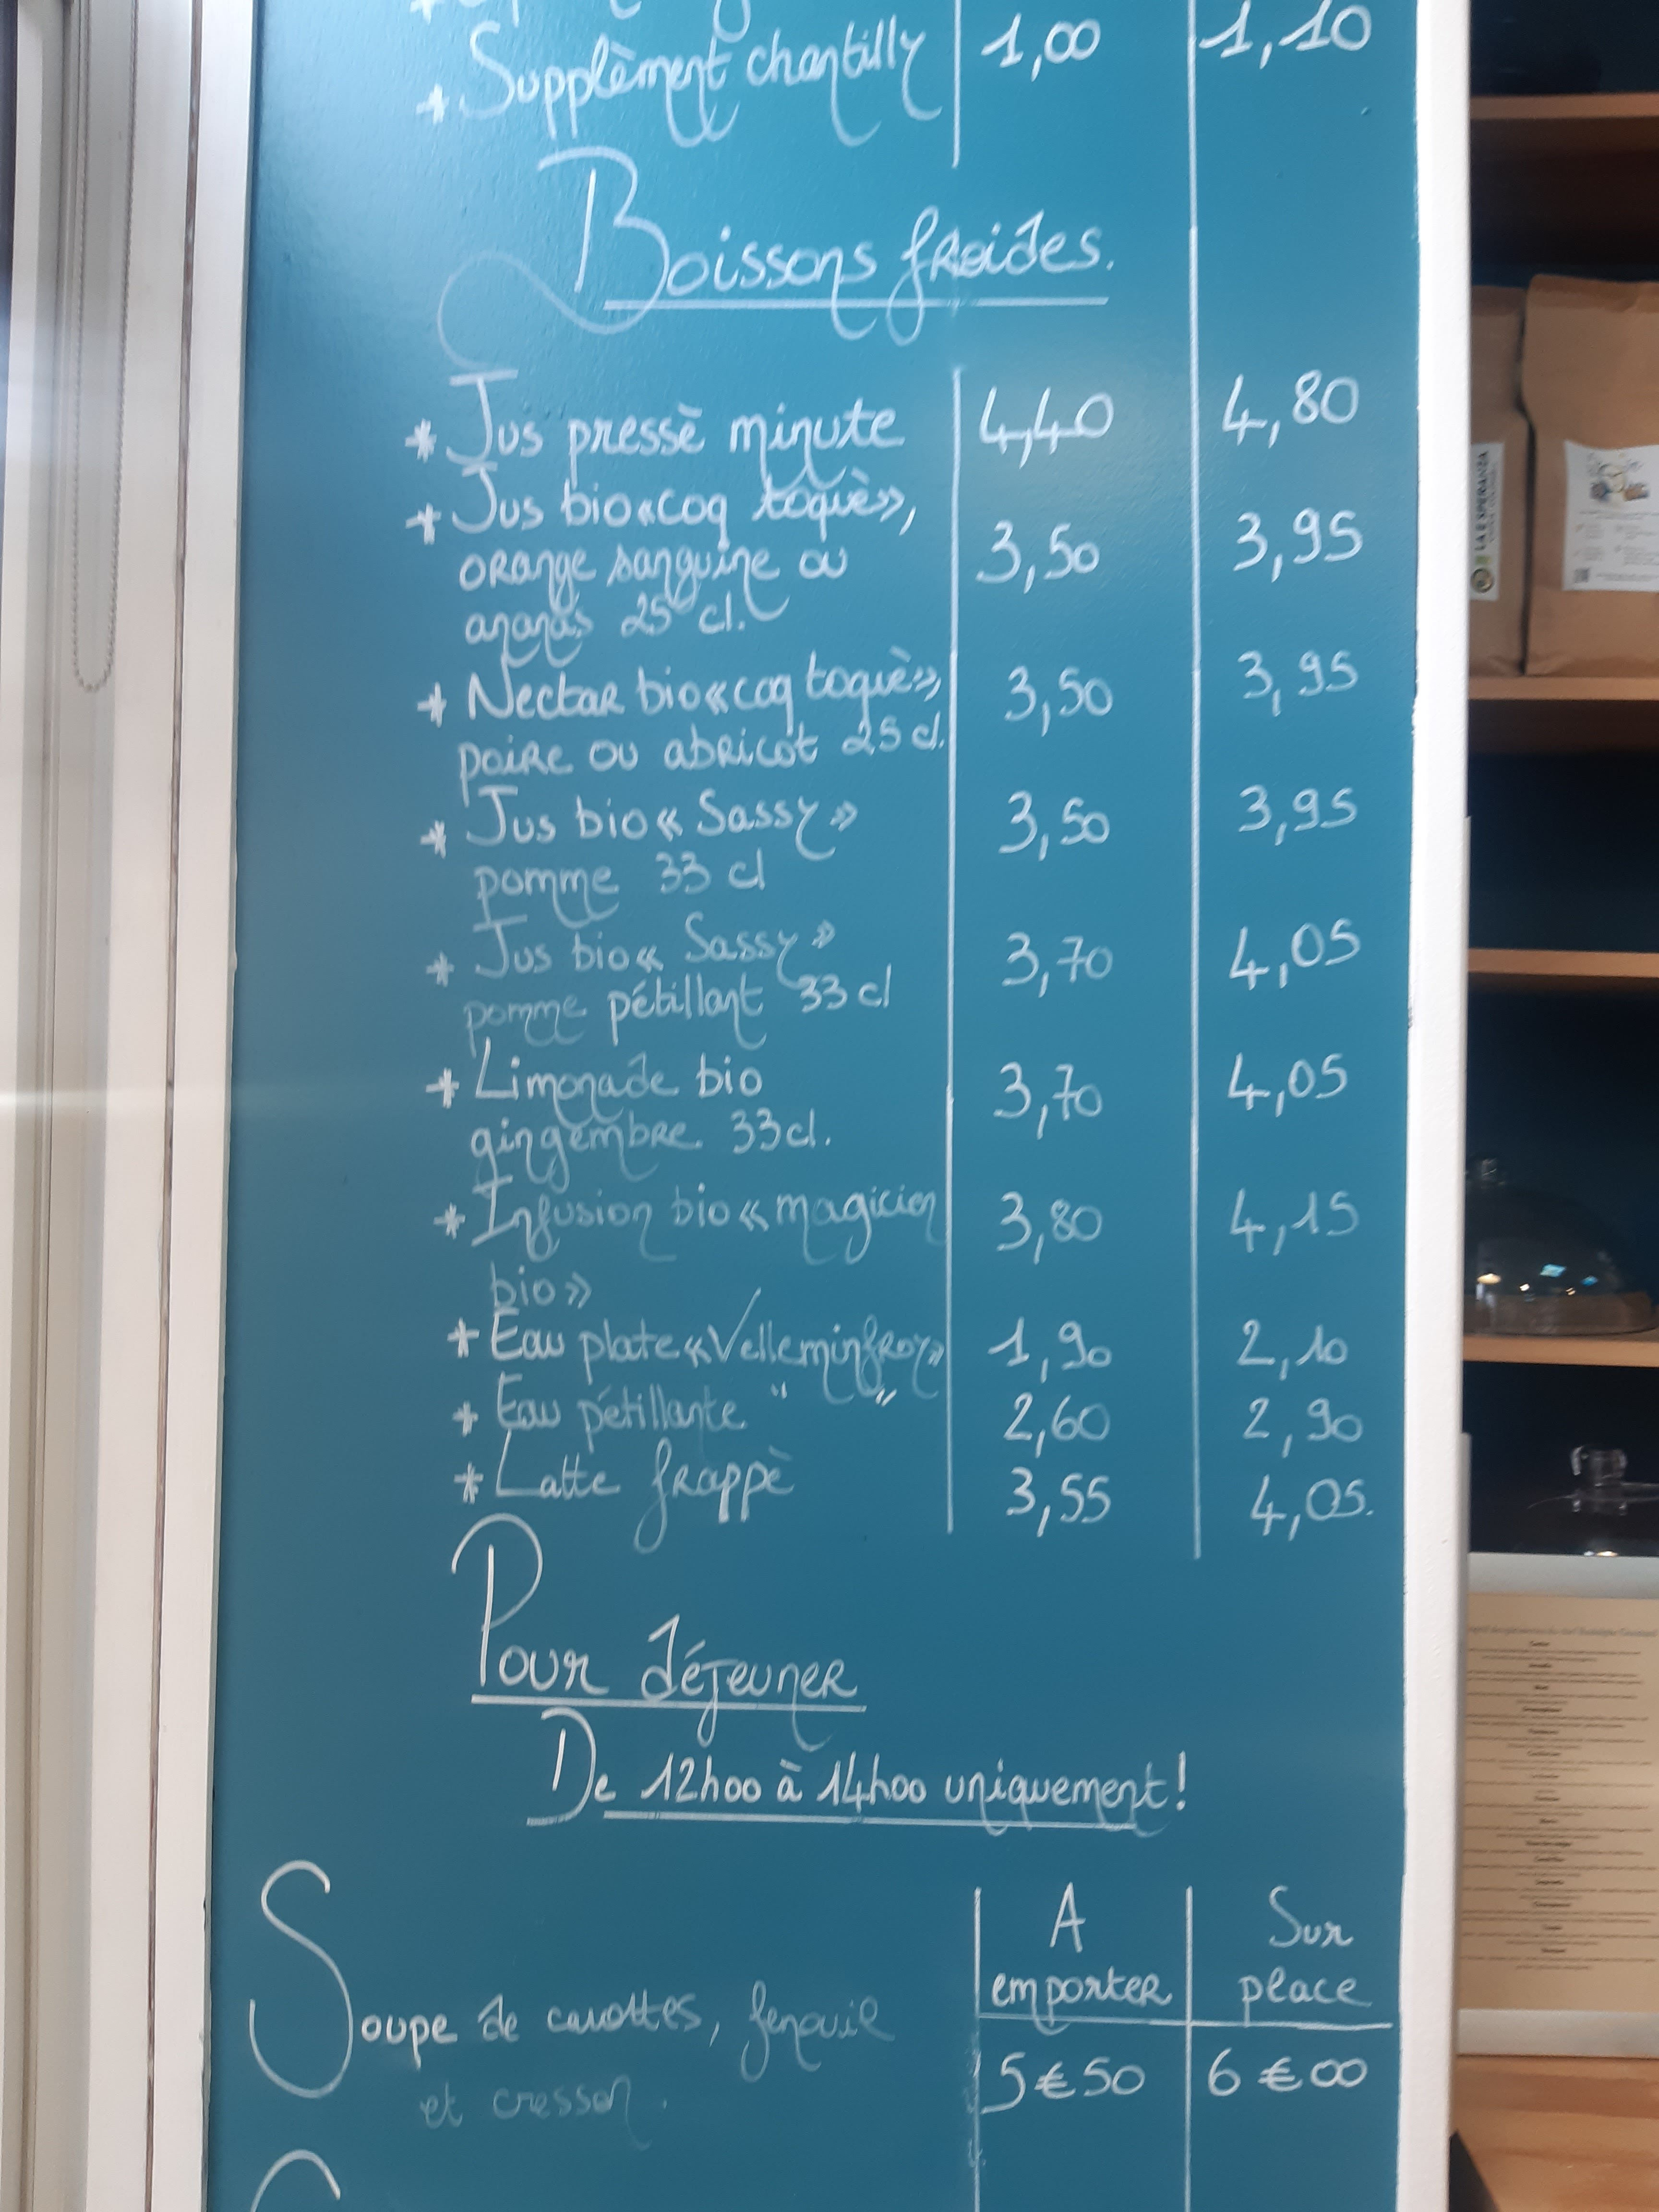 * Supplèment chantilly 1,00 1,10
Boissons froides.
* Jus pressè minute 4,40 4,80
* Jus bio «coq toquè»,
orange sanguine ou 3,50 3,95
ananas 25 cl.
* Nectar bio «coq toquè», 3,50 3,95
poire ou abricot 25 cl.
* Jus bio « Sassy » 3,50 3,95
pomme 33 cl
* Jus bio « Sassy » 3,70 4,05
pomme pétillant 33 cl
* Limonade bio 3,70 4,05
gingembre 33 cl.
* Infusion bio « magicien 3,80 4,15
bio »
* Eau plate «Velleminfroy» 1,90 2,10
* Eau pétillante " " 2,60 2,90
* Latte frappè 3,55 4,05.
Pour déjeuner
De 12h00 à 14h00 uniquement!
A Sur
emporter place
Soupe de carottes, fenouil
et cresson. 5€50 6€00
LA ESPERANZA